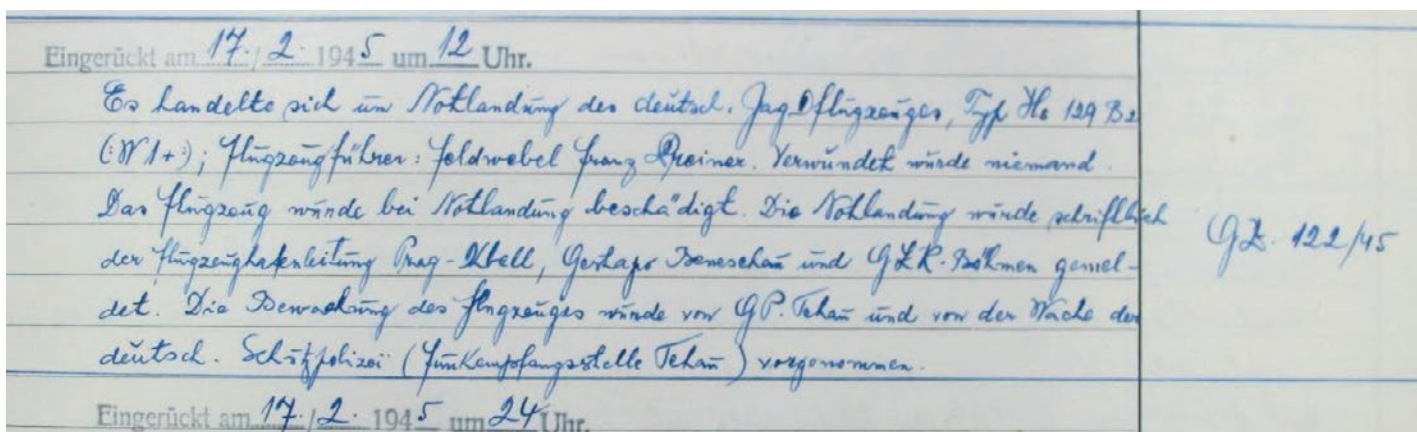 Eingerückt am 17./2. 1945 um 12 Uhr.
Es handelte sich um Notlandung des deutsch. Jagdflugzeuges, Typ Hs 129 B2
(:W1+:); Flugzeugführer: Feldwebel Franz Preiner. Verwundet wurde niemand.
Das Flugzeug wurde bei Notlandung beschädigt. Die Nohlandung wurde schriftlich
der Flugzeughafenleitung Prag-Kbell, Gestapo Beneschau und GLK-Böhmen gemel-
det. Die Bewachung des Flugzeuges wurde von GP. Tehau und von der Wache der
deutsch. Schutzpolizei (Funkempfangsstelle Tehau) vorgenommen.
GZ. 122/45
Eingerückt am 17./2. 1945 um 24 Uhr.